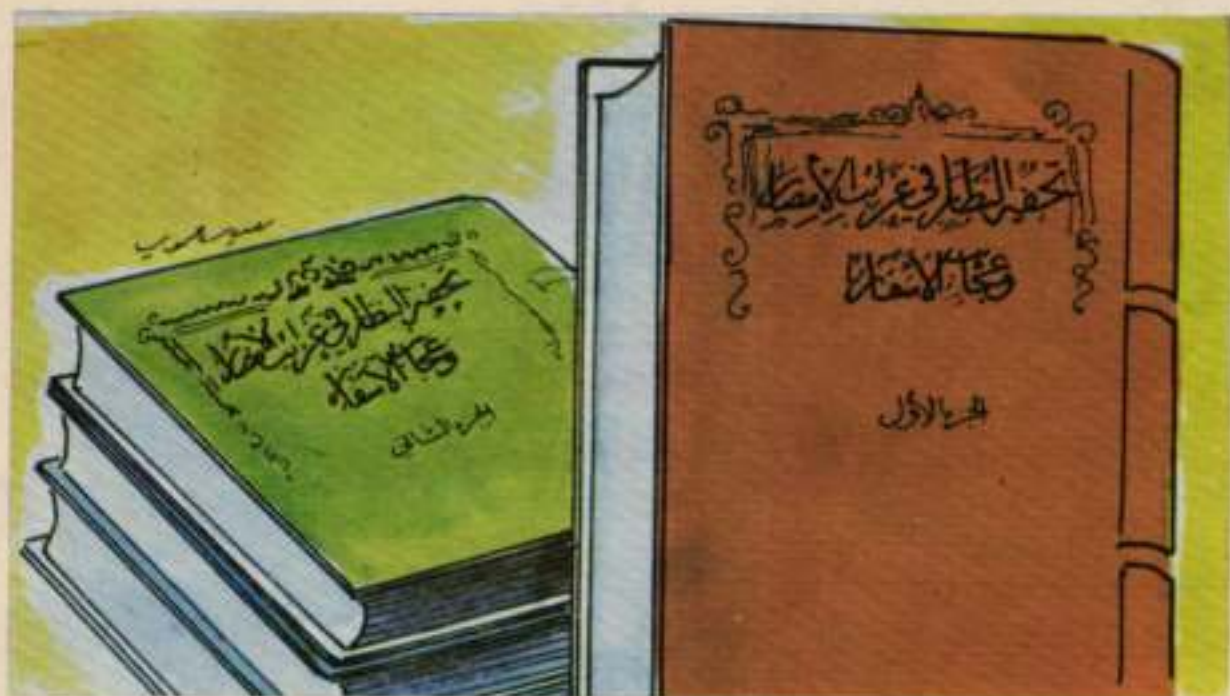 تحفة النظار في غرائب الأمصار
وعجائب الأسفار
الجزء الأول
تحفة النظار في غرائب الأمصار
وعجائب الأسفار
الجزء الثاني